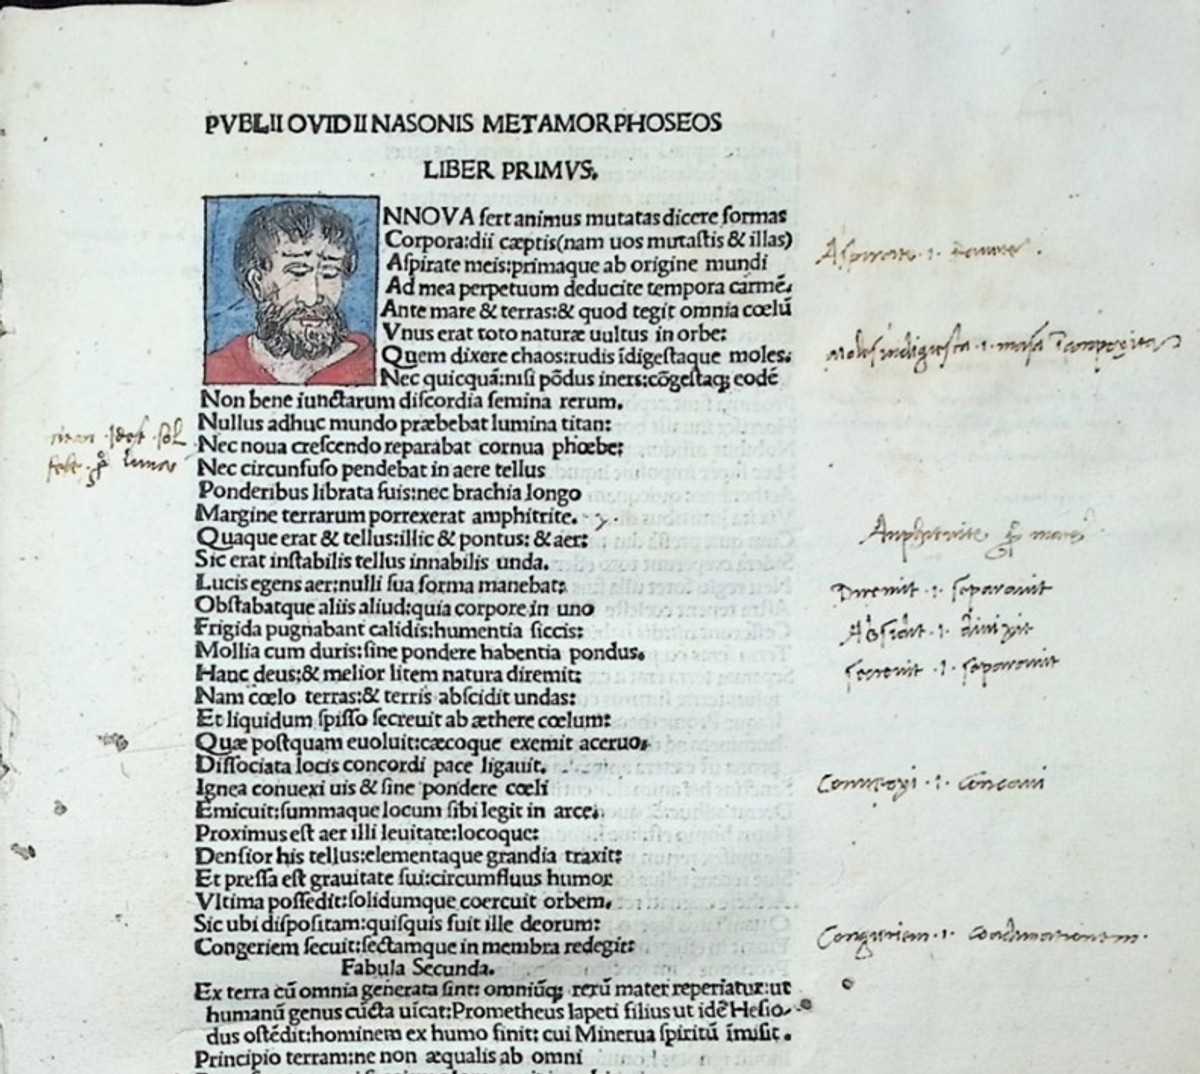 PVBLII OVIDII NASONIS METAMORPHOSEOS
LIBER PRIMVS.
NNOVA fert animus mutatas dicere formas
Corpora:dii cæptis(nam uos mutaſtis & illas)
Aſpirate meis:primaque ab origine mundi
Ad mea perpetuum deducite tempora carmē.
Ante mare & terras:& quod tegit omnia cœlū
Vnus erat toto naturæ uultus in orbe:
Quem dixere chaos:rudis īdigeſtaque moles:
Nec quicquā:niſi pōdus iners:cōgeſtaq; eodē
Non bene iunctarum diſcordia ſemina rerum.
Nullus adhuc mundo præbebat lumina titan:
Nec noua creſcendo reparabat cornua phœbe:
Nec circunfuſo pendebat in aere tellus
Ponderibus librata ſuis:nec brachia longo
Margine terrarum porrexerat amphitrite.
Quaque erat & tellus:illic & pontus: & aer:
Sic erat inſtabilis tellus innabilis unda.
Lucis egens aer:nulli ſua forma manebat:
Obſtabatque aliis aliud:quia corpore in uno
Frigida pugnabant calidis:humentia ſiccis:
Mollia cum duris:ſine pondere habentia pondus.
Hanc deus:& melior litem natura diremit:
Nam cœlo terras:& terris abſcidit undas:
Et liquidum ſpiſſo ſecreuit ab æthere cœlum:
Quæ poſtquam euoluit:cæcoque exemit aceruo:
Diſſociata locis concordi pace ligauit.
Ignea conuexi uis & ſine pondere cœli
Emicuit:ſummaque locum ſibi legit in arce.
Proximus eſt aer illi leuitate:locoque:
Denſior his tellus:elementaque grandia traxit:
Et preſſa eſt grauitate ſui:circumfluus humor
Vltima poſſedit:ſolidumque coercuit orbem.
Sic ubi diſpoſitam:quiſquis fuit ille deorum:
Congeriem ſecuit:ſectamque in membra redegit:
Fabula Secunda.
Ex terra cū omnia generata ſint: omniūq; rerū mater reperiatur:ut
humanū genus cūcta uīcat:Prometheus Iapeti filius ut idē Heſio-
dus oſtēdit:hominem ex humo finit: cui Minerua ſpiritū īmiſit.
Principio terram:ne non æqualis ab omni
titan ·ideſt· ſol
luna
Aſpirate ·i·
moles indigeſta ·i· maſa
Amphitrite
Diremit ·i· ſeparauit
Abſcidit ·i· diuiſit
ſecreuit ·i· ſeparauit
Conuexi ·i· concaui
Congeriem ·i· coadunationem